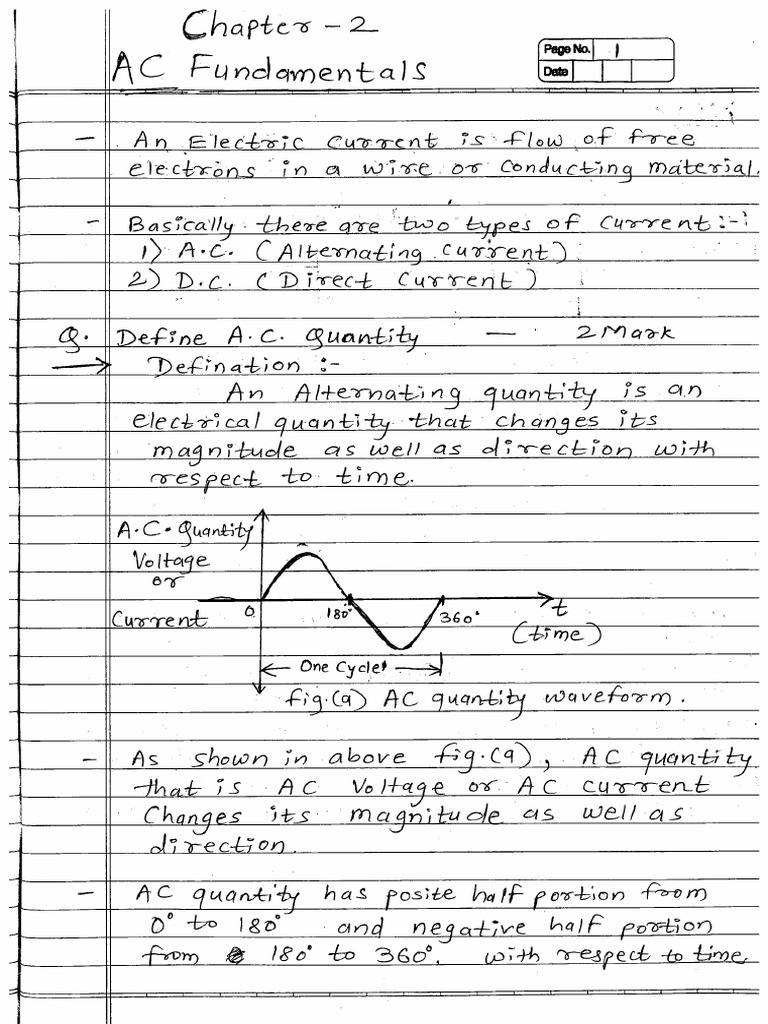 Chapter - 2
AC Fundamentals
Page No. 1
Date
- An Electric current is flow of free
electrons in a wire or conducting material.
- Basically there are two types of current :-
1) A.C. (Alternating current)
2) D.C. (Direct current)
Q. Define A.C. Quantity — 2 Mark
→ Defination :-
An Alternating quantity is an
electrical quantity that changes its
magnitude as well as direction with
respect to time.
A.C. Quantity
Voltage
or
Current
0
180°
360°
t
(time)
One Cycle
fig.(a) AC quantity waveform.
- As shown in above fig.(a), AC quantity
that is AC Voltage or AC current
Changes its magnitude as well as
direction.
- AC quantity has posite half portion from
0° to 180° and negative half portion
from 180° to 360°. with respect to time.